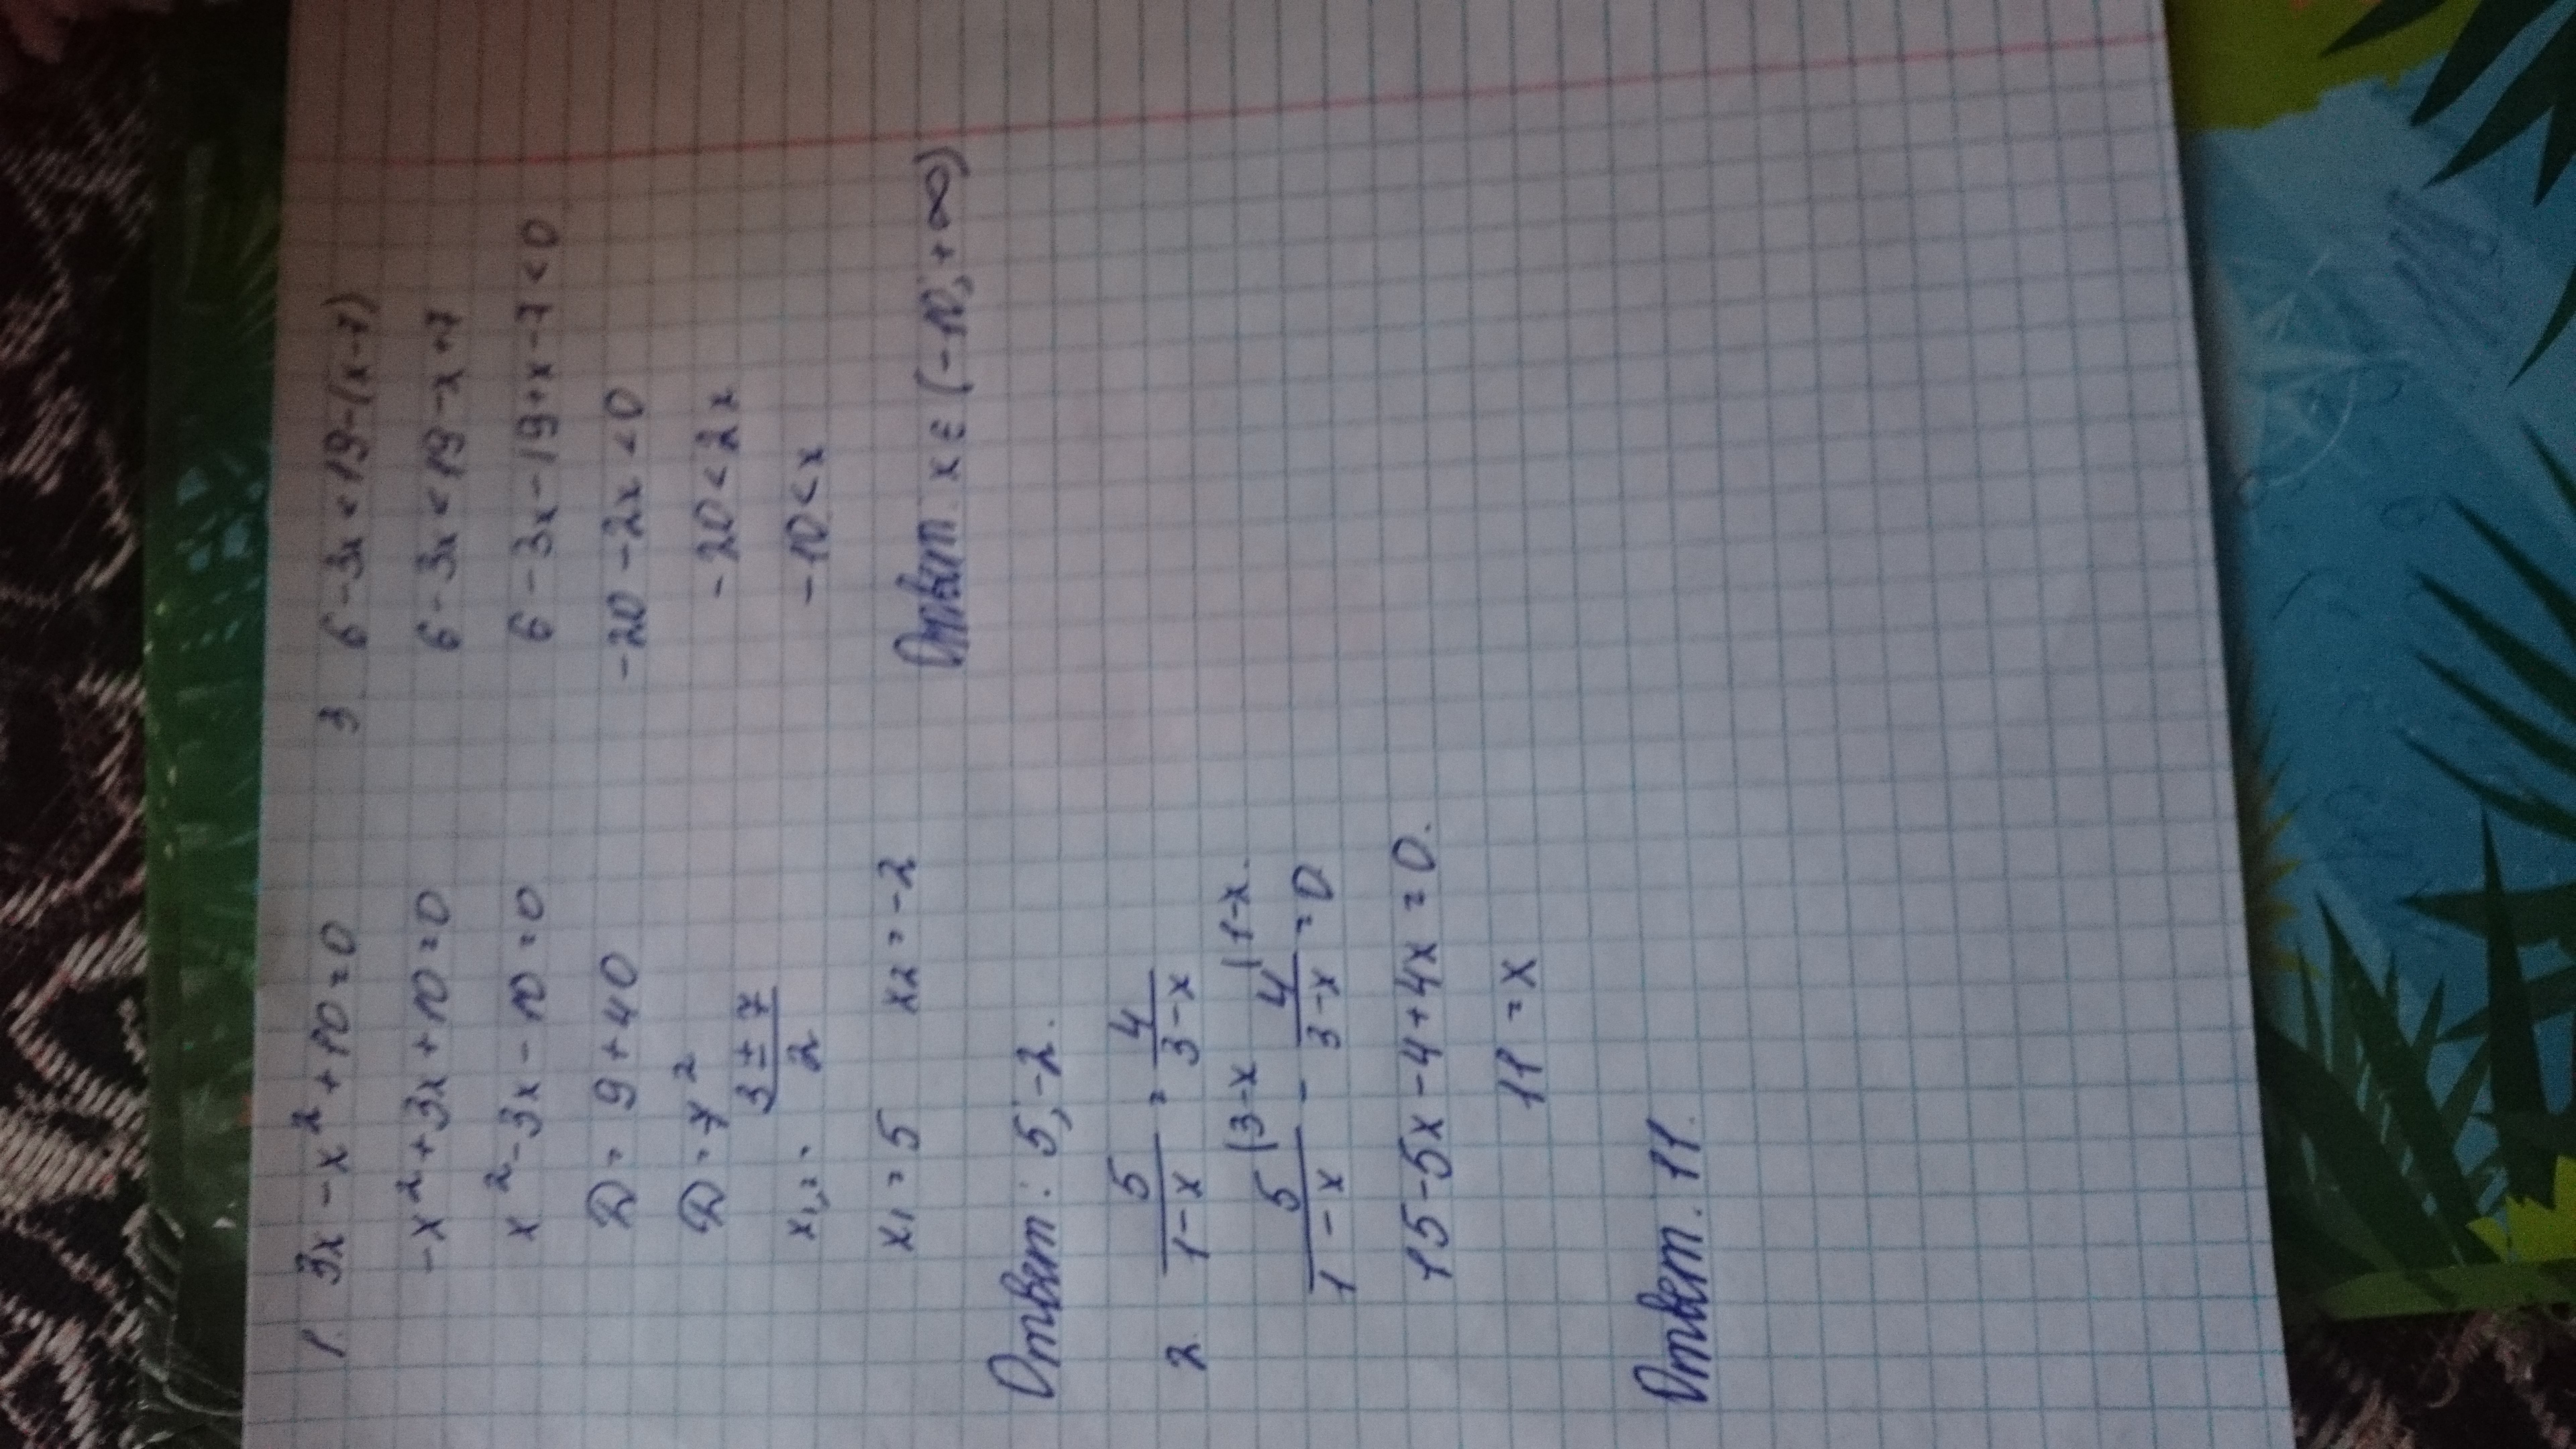 1. 3x - x² + 10 = 0
-x² + 3x + 10 = 0
x² - 3x - 10 = 0
D = 9 + 40
D = 7²
x₁,₂ = (3 ± 7)/2
x₁ = 5 x₂ = -2
Ответ: 5; -2.
2. 5/(1-x) = 4/(3-x)
5/(1-x) |3-x - 4/(3-x) |1-x. = 0
15 - 5x - 4 + 4x = 0.
11 = x
Ответ: 11.
3 6 - 3x < 19 - (x - 7)
6 - 3x < 19 - x + 7
6 - 3x - 19 + x - 7 < 0
-20 - 2x < 0
-20 < 2x
-10 < x
Ответ: x ∈ (-10; +∞)